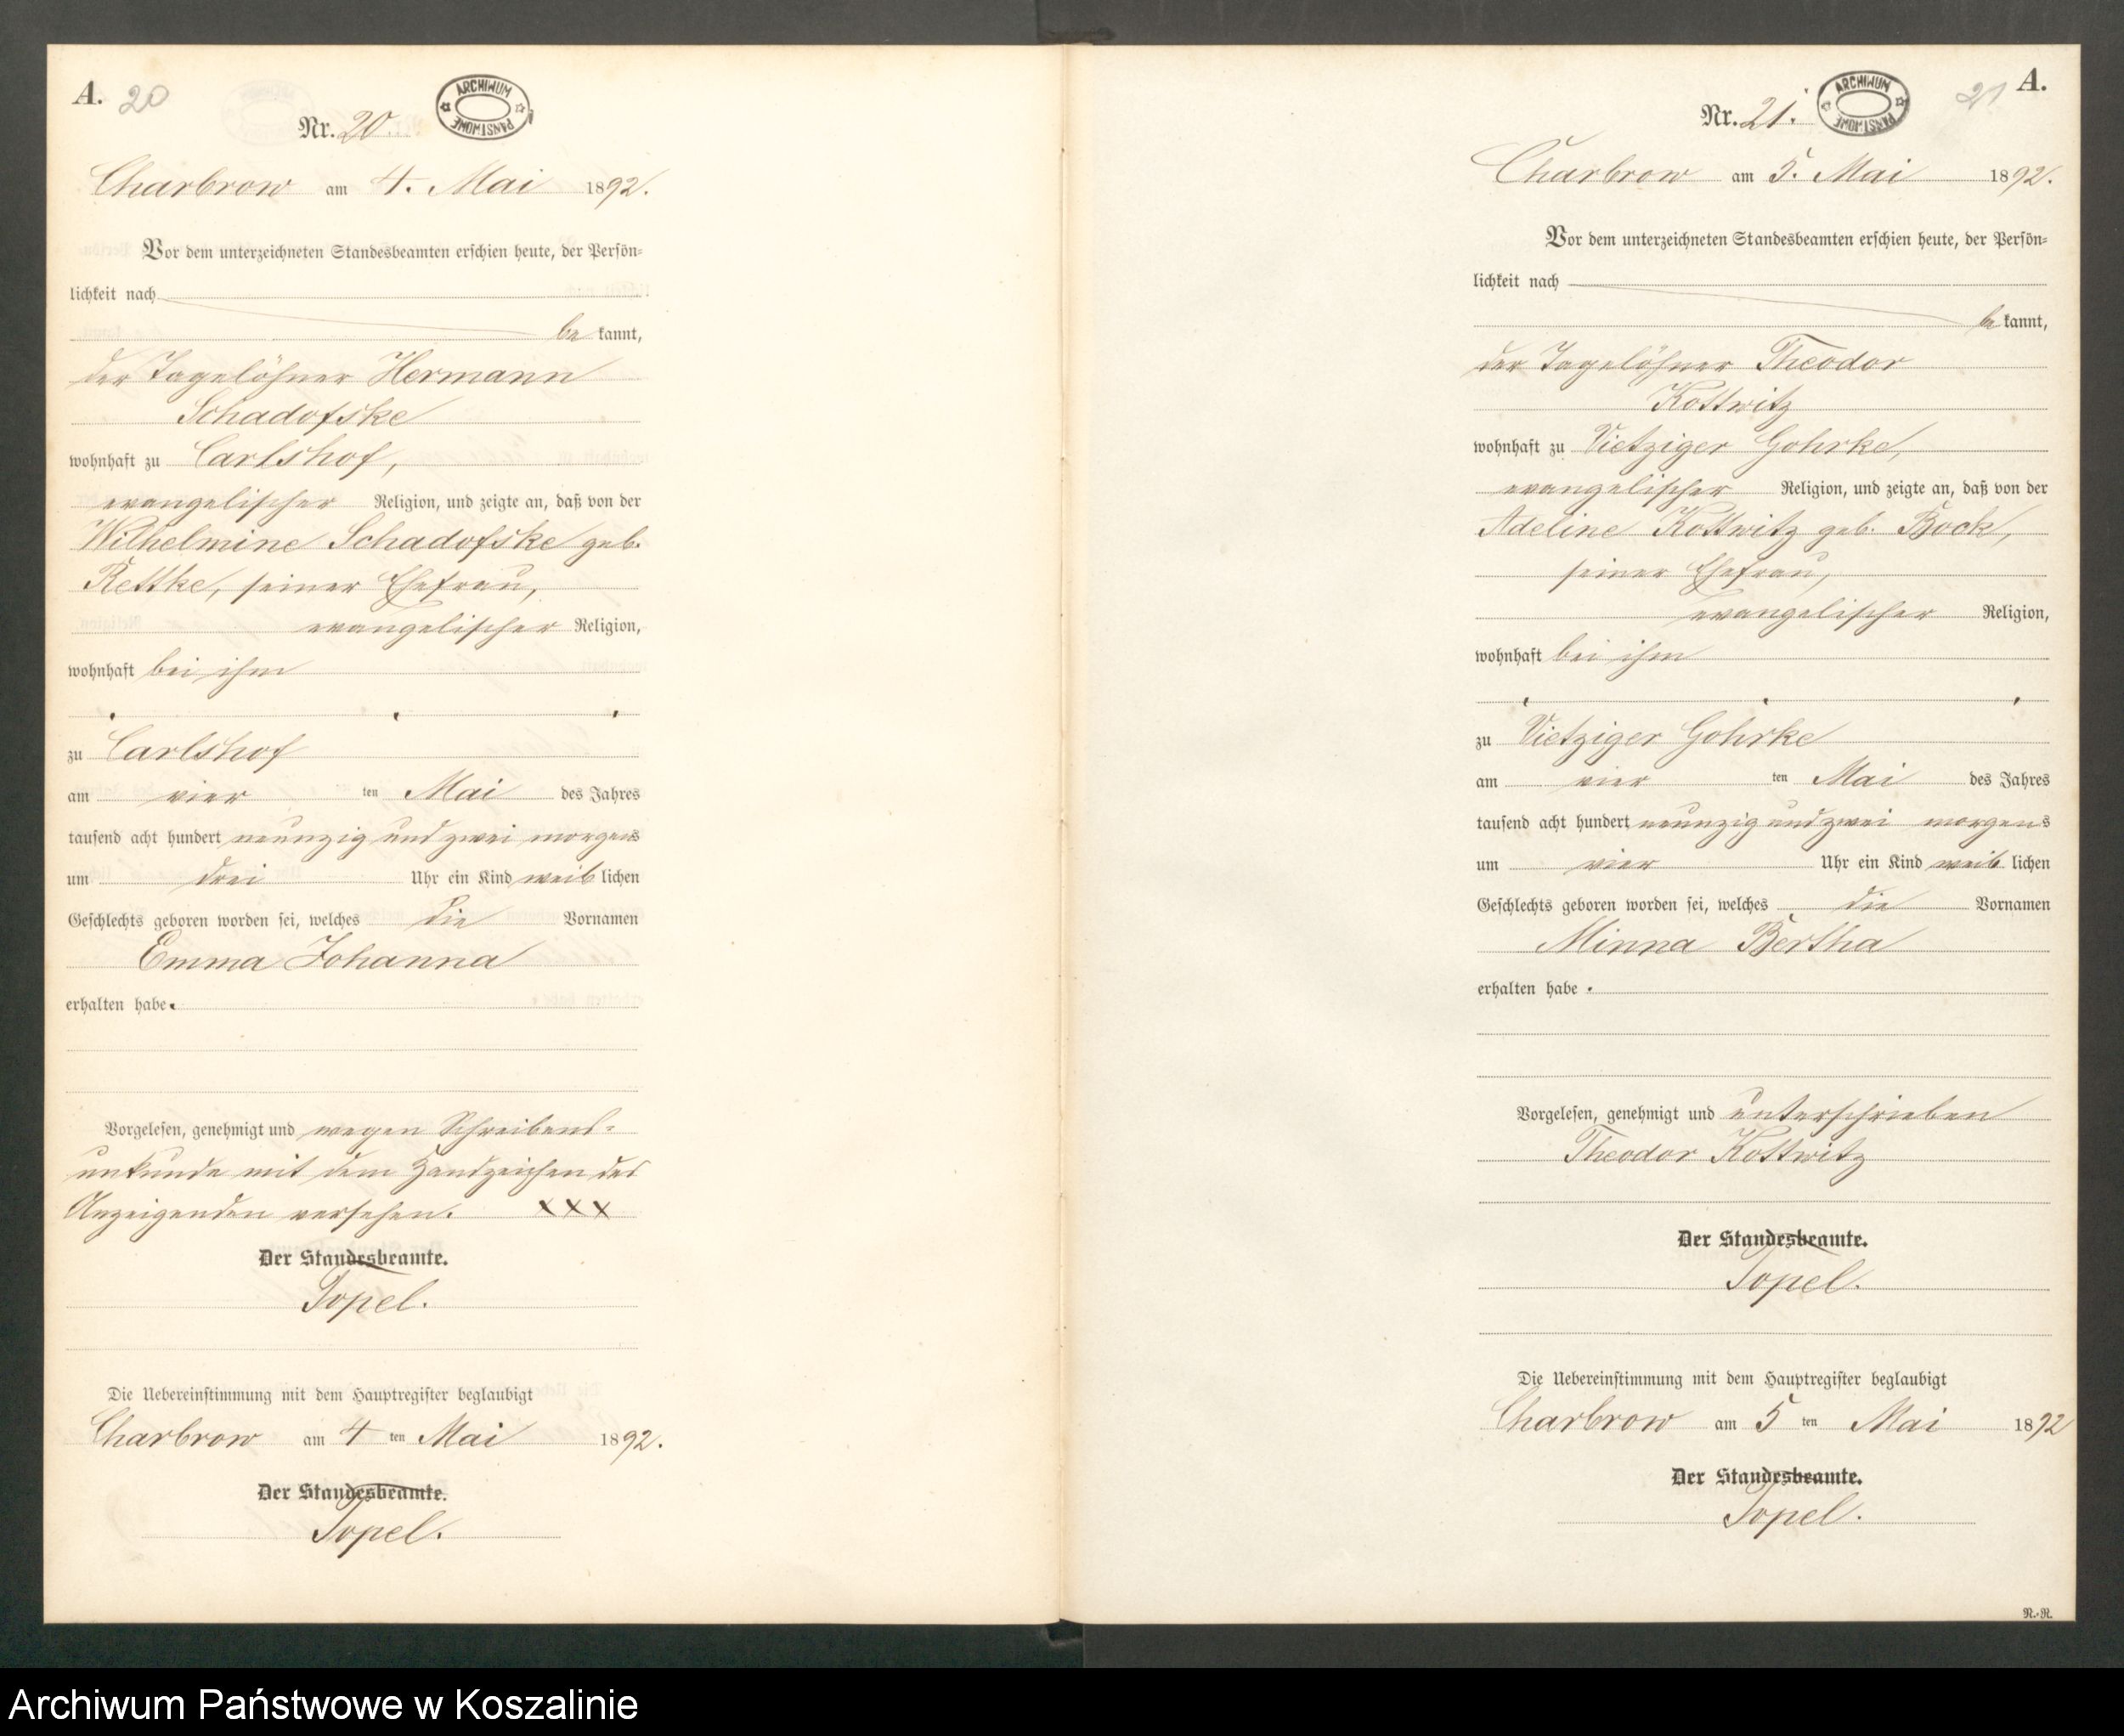 A. 20
ARCHIWUM PAŃSTWOWE
Nr. 20.
Charbrow am 4. Mai 1892.
Vor dem unterzeichneten Standesbeamten erschien heute, der Persön-
lichkeit nach
be kannt,
der Tagelöhner Hermann
Schadofske
wohnhaft zu Carlshof,
evangelischer Religion, und zeigte an, daß von der
Wilhelmine Schadofske geb.
Rettke, seiner Ehefrau,
evangelischer Religion,
wohnhaft bei ihm
zu Carlshof
am vier ten Mai des Jahres
tausend acht hundert neunzig und zwei morgens
um drei Uhr ein Kind weib lichen
Geschlechts geboren worden sei, welches die Vornamen
Emma Johanna
erhalten habe.
Vorgelesen, genehmigt und wegen Schreibens-
unkunde mit dem Handzeichen des
Anzeigenden versehen. XXX
Der Standesbeamte.
Topel.
Die Uebereinstimmung mit dem Hauptregister beglaubigt
Charbrow am 4 ten Mai 1892.
Der Standesbeamte.
Topel.
21 A.
ARCHIWUM PAŃSTWOWE
Nr. 21.
Charbrow am 5. Mai 1892.
Vor dem unterzeichneten Standesbeamten erschien heute, der Persön-
lichkeit nach
be kannt,
der Tagelöhner Theodor
Kottwitz
wohnhaft zu Vietziger Gohrke,
evangelischer Religion, und zeigte an, daß von der
Adeline Kottwitz geb. Bock,
seiner Ehefrau,
evangelischer Religion,
wohnhaft bei ihm
zu Vietziger Gohrke
am vier ten Mai des Jahres
tausend acht hundert neunzig und zwei morgens
um vier Uhr ein Kind weib lichen
Geschlechts geboren worden sei, welches die Vornamen
Minna Bertha
erhalten habe.
Vorgelesen, genehmigt und unterschrieben
Theodor Kottwitz
Der Standesbeamte.
Topel.
Die Uebereinstimmung mit dem Hauptregister beglaubigt
Charbrow am 5 ten Mai 1892
Der Standesbeamte.
Topel.
R.-R.
Archiwum Państwowe w Koszalinie